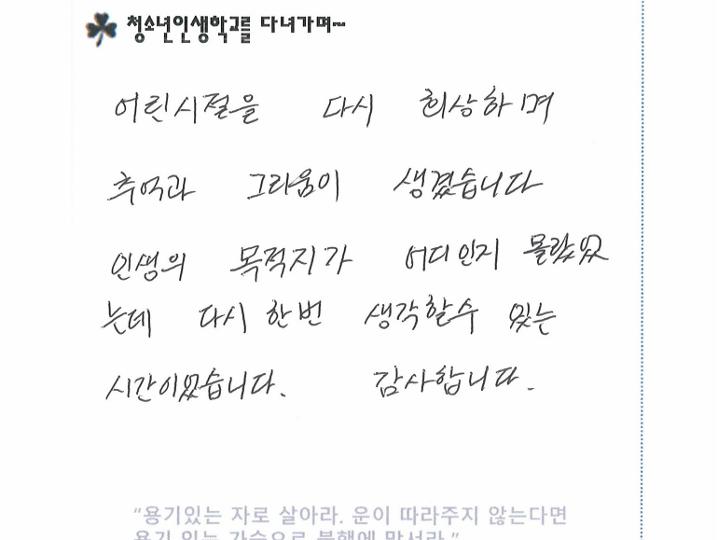 청소년인생학교를 다녀가며~
어린시절을 다시 회상하며
추억과 그리움이 생겼습니다
인생의 목적지가 어디인지 몰랐었
는데 다시 한번 생각할수 있는
시간이었습니다. 감사합니다.
"용기있는 자로 살아라. 운이 따라주지 않는다면
용기 있는 가슴으로 불행에 맞서라."